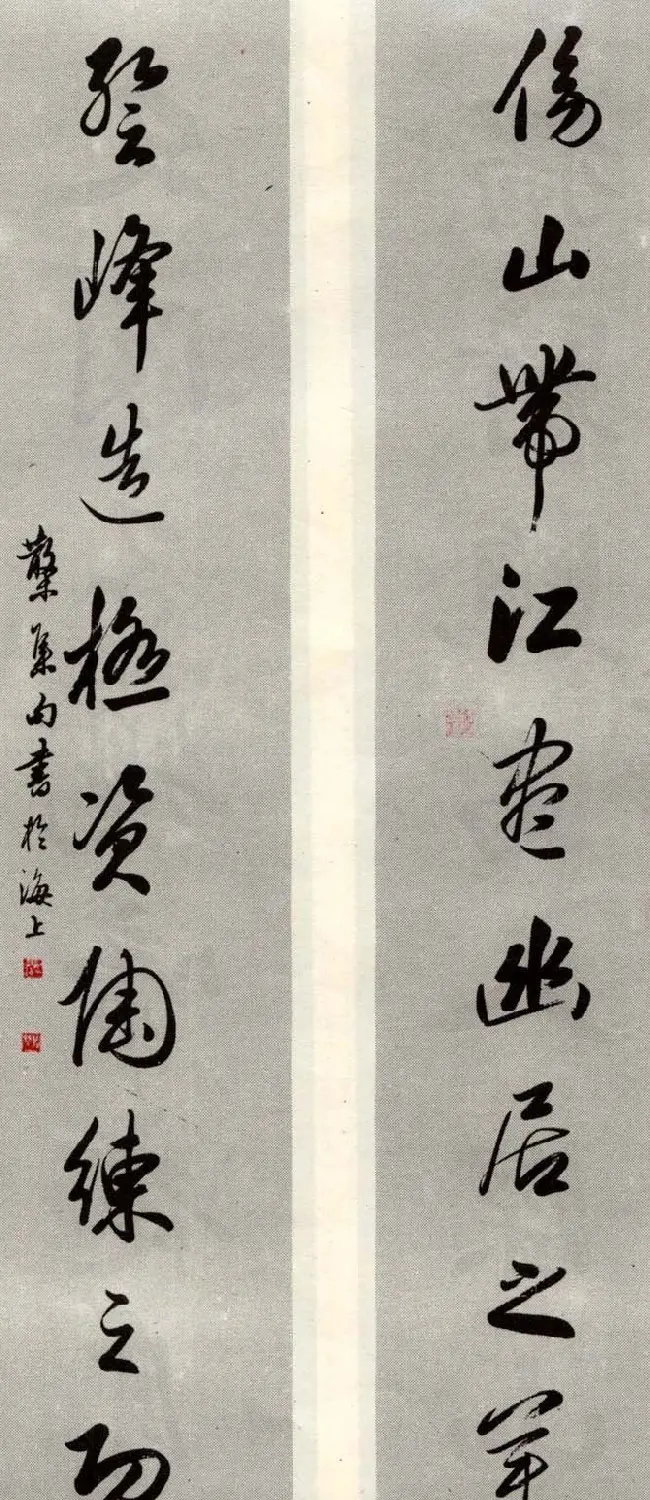 傍山帶江盡幽居之美
登峰造極資陶練之功
集句書於海上